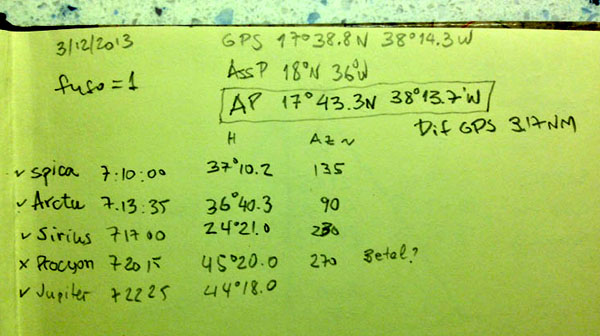 3/12/2013 GPS 17°38.8N 38°14.3W
fuso=1 AssP 18°N 36°W
AP 17°43.3N 38°13.7'W
Dif GPS 3.17NM
H Az~
✓ Spica 7:10:00 37°10.2 135
✓ Arctu 7.13.35 36°40.3 90
✓ Sirius 7 17 00 24°21.0 230
x Procyon 7 20 15 45°20.0 270 Betel?
✓ Jupiter 7 22 25 44°18.0